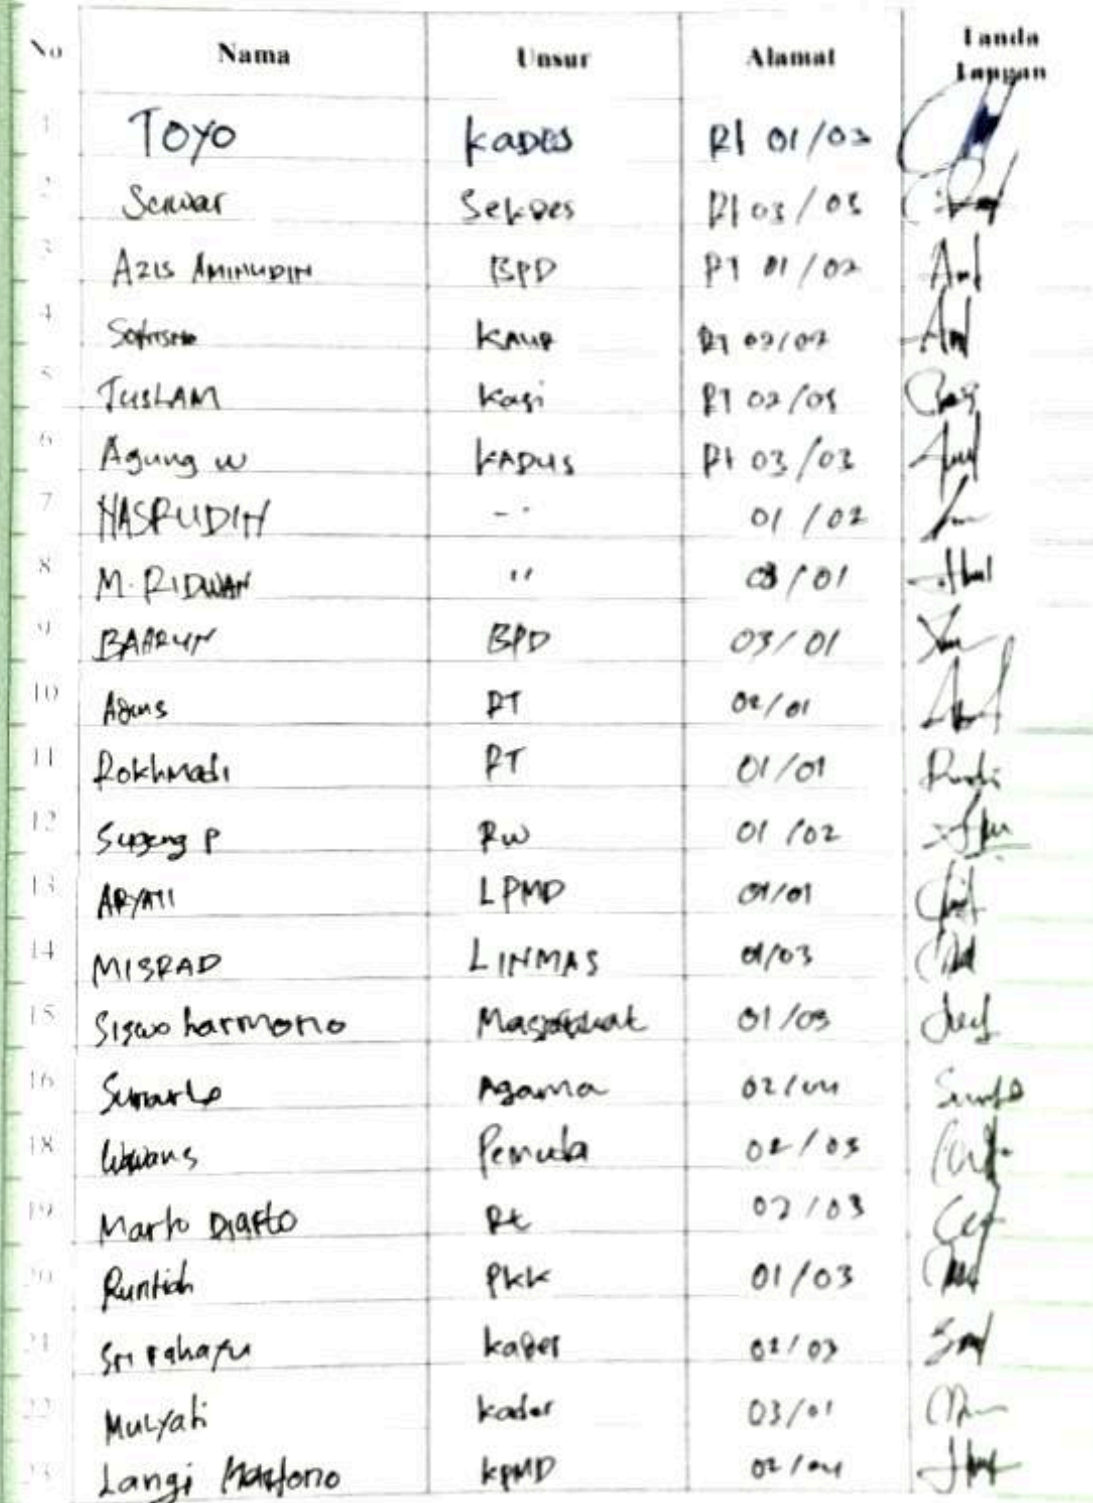 No Nama Unsur Alamat Tanda Tangan
1 TOYO KADES Rt 01/03
2 Sekdes Rt 03/03
3 AZIS AMINUDIN BPD RT 01/02
4 KAUR RT 02/02
5 TUSLAM Kasi RT 02/03
6 Agung W KADUS Rt 03/03
7 NASRUDIN -·· 01/02
8 M. RIDWAN '' 03/01
9 BAARUN BPD 03/01
10 Agus RT 02/01
11 Rokhmadi RT 01/01
12 Sugeng P RW 01/02
13 ARYATI LPMD 01/01
14 MISRAD LINMAS 01/03
15 Siswo harmono Masyarakat 01/03
16 Sunarto Agama 02/04
18 Wawans Pemuda 02/03
19 Marto Diarto Rt 02/03
20 Runtiah PKK 01/03
21 Sri rahayu kader 02/03
22 Mulyati kader 03/01
23 Langi Hartono KPMD 02/04